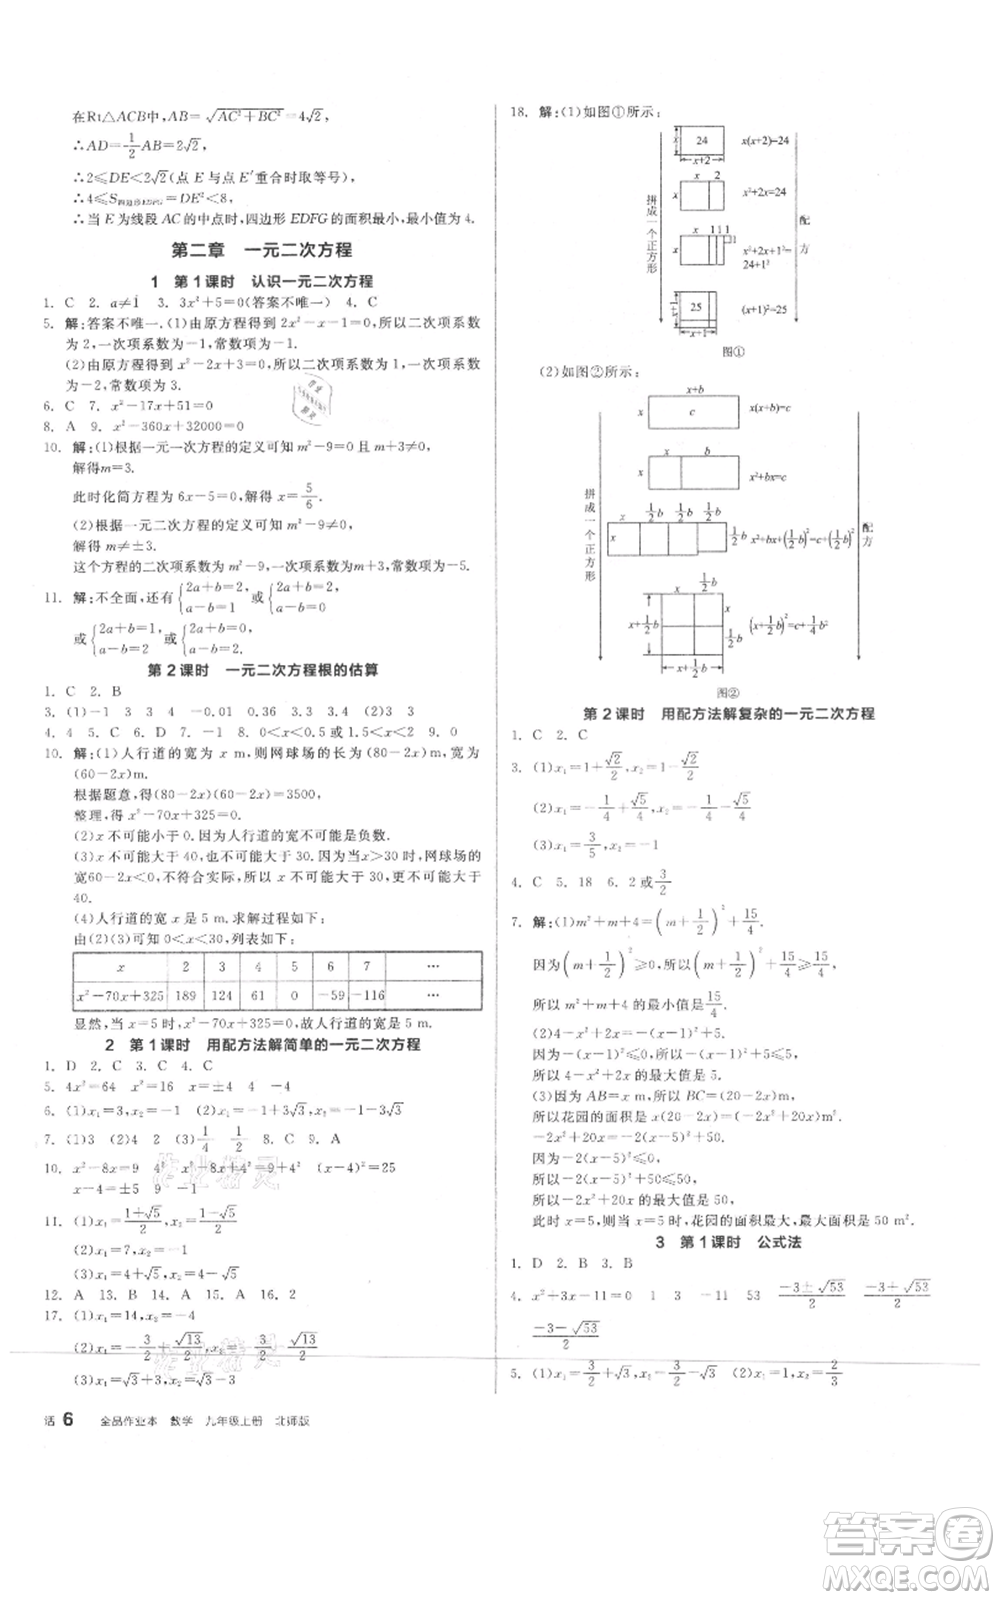 在Rt△ACB中,AB=√(AC²+BC²)=4√2,
∴AD=1/2AB=2√2,
∴2≤DE<2√2(点 E 与点 E′重合时取等号),
∴4≤S四边形EDFG=DE²<8,
∴当 E 为线段 AC 的中点时,四边形 EDFG 的面积最小,最小值为 4.
第二章 一元二次方程
1 第1课时 认识一元二次方程
1. C 2. a≠1 3. 3x²+5=0(答案不唯一) 4. C
5. 解:答案不唯一.(1)由原方程得到 2x²-x-1=0,所以二次项系数
为 2,一次项系数为-1,常数项为-1.
(2)由原方程得到 x²-2x+3=0,所以二次项系数为 1,一次项系数
为-2,常数项为 3.
6. C 7. x²-17x+51=0
8. A 9. x²-360x+32000=0
10. 解:(1)根据一元一次方程的定义可知 m²-9=0 且 m+3≠0,
解得m=3.
此时化简方程为 6x-5=0,解得 x=5/6.
(2)根据一元二次方程的定义可知 m²-9≠0,
解得 m≠±3.
这个方程的二次项系数为 m²-9,一次项系数为 m+3,常数项为-5.
11. 解:不全面,还有{2a+b=2, a-b=1 或{2a+b=2, a-b=0
或{2a+b=1, a-b=2 或{2a+b=0, a-b=2.
第2课时 一元二次方程根的估算
1. C 2. B
3. (1)-1 1 3 -0.01 0.36 3.3 3.4 (2)3 3
4. 4 5. C 6. D 7. -1 8. 0<x<0.5或1.5<x<2 9. C
10. 解:(1)人行道的宽为 x m,则网球场的长为(80-2x)m,宽为
(60-2x)m.
根据题意,得(80-2x)(60-2x)=3500,
整理,得 x²-70x+325=0.
(2)x 不可能小于 0.因为人行道的宽不可能是负数.
(3)x 不可能大于 40,也不可能大于 30.因为当x>30 时,网球场的
宽60-2x<0,不符合实际,所以 x 不可能大于 30,更不可能大于
40.
(4)人行道的宽 x 是 5 m.求解过程如下:
由(2)(3)可知 0<x<30,列表如下:
x 2 3 4 5 6 7 …
x²-70x+325 189 124 61 0 -59 -116 …
显然,当 x=5 时,x²-70x+325=0,故人行道的宽为 5 m.
2 第1课时 用配方法解简单的一元二次方程
1. D 2. C 3. C 4. C
5. 4x²=64 x²=16 x=±4 4 -4
6. (1)x₁=3,x₂=-1 (2)x₁=-1+3√3,x₂=-1-3√3
7. (1)3 (2)4 2 (3)1/4 1/2 8. C 9. A
10. x²-8x=9 4² x²-8x+4²=9+4² (x-4)²=25
x-4=±5 9 -1
11. (1)x₁=(1+√5)/2,x₂=(1-√5)/2
(2)x₁=7,x₂=-1
(3)x₁=4+√5,x₂=4-√5
12. A 13. B 14. A 15. A 16. 2
17. (1)x₁=14,x₂=-4
(2)x₁=-3/2+√13/2,x₂=-3/2-√13/2
(3)x₁=√3+1,x₂=√3-1
18. 解:(1)如图①所示:
x 24 x+2 x(x+2)=24
x 2 x²+2x=24
x 1 1 1 1 x²+2x+1
=24+1
x+1 25 x+1 (x+1)²=25
拼成一个正方形
配方
图①
(2)如图②所示:
x+b
x c x(x+b)=c
x b
x x²+bx=c
x 1/2b 1/2b 1/2b
x x²+bx+(1/2b)²=c+(1/2b)²
1/2b
x+1/2b x 1/2b (x+1/2b)²=c+1/4b²
x+1/2b
拼成一个正方形
配方
图②
第2课时 用配方法解复杂的一元二次方程
1. C 2. C
3. (1)x₁=1+√2/2,x₂=1-√2/2
(2)x₁=-1/4+√5/4,x₂=-1/4-√5/4
(3)x₁=3/5,x₂=-1
4. C 5. 18 6. 2或3/2
7. 解:(1)m²+m+4=(m+1/2)²+15/4.
因为(m+1/2)²≥0,所以(m+1/2)²+15/4≥15/4,
所以 m²+m+4 的最小值是15/4.
(2)4-x²+2x=-(x-1)²+5.
因为-(x-1)²≤0,所以-(x-1)²+5≤5,
所以 4-x²+2x 的最大值是 5.
(3)因为 AB=x m,所以 BC=(20-2x)m,
所以花园的面积是 x(20-2x)=(-2x²+20x)m².
-2x²+20x=-2(x-5)²+50.
因为-2(x-5)²≤0,
所以-2(x-5)²+50≤50,
所以-2x²+20x 的最大值是 50,
此时 x=5,所以当x=5时,花园的面积最大,最大面积是 50 m².
3 第1课时 公式法
1. D 2. B 3. B
4. x²+3x-11=0 1 3 -11 53 (-3±√53)/2 (-3+√53)/2
(-3-√53)/2
5. (1)x₁=3/2+√3,x₂=3/2-√3 (2)x₁=-1/2,x₂=2/3
活 6 全品作业本 数学 九年级上册 北师版
作业精灵
答案圈